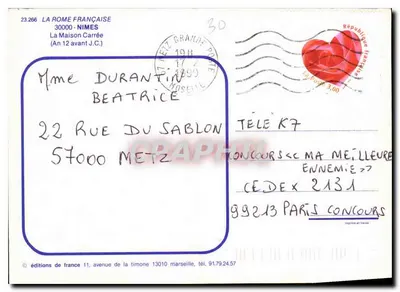 23.266 LA ROME FRANÇAISE
30000 - NIMES
La Maison Carrée
(An 12 avant J.C.)
30
57 METZ GRANDE POSTE
18H
17-2
1999
MOSELLE
RÉPUBLIQUE FRANÇAISE
La Poste 3,00
Mme DURANTIN
BEATRICE
22 RUE DU SABLON
57000 METZ
TÉLÉ K7
CONCOURS << MA MEILLEURE
ENNEMIE >>
CEDEX 2131
99213 PARIS CONCOURS
© éditions de france 11, avenue de la timone 13010 marseille, tél. 91.79.24.57